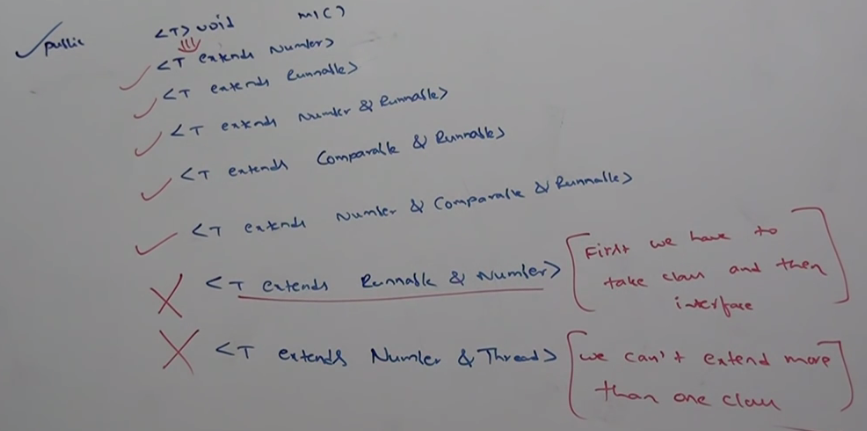 ✓public <T> void m1()
✓ <T extends Number>
✓ <T extends Runnable>
✓ <T extends Number & Runnable>
✓ <T extends Comparable & Runnable>
✓ <T extends Number & Comparable & Runnable>
X <T extends Runnable & Number> [First we have to
take class and then
interface]
X <T extends Number & Thread> [we can't extend more
than one class]